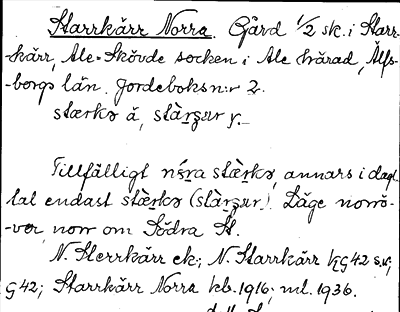 Starrkärr Norra. Gård 1/2 sk. i Starr-
kärr, Ale-Skövde socken i Ale härad, Älfs-
borgs län. Jordeboksn:r 2.
stærkə å, stàrz̥ar y.
Tillfälligt nó́ra stæ̀rkə, annars i dagl.
tal endast stæ̀rkə (stàrz̥ar). Läge norrö-
-ver, norr om Södra St.
N. Sterrkärr ek; N. Starrkärr G42
G42; Starrkärr Norra kb. 1916; ml. 1936.